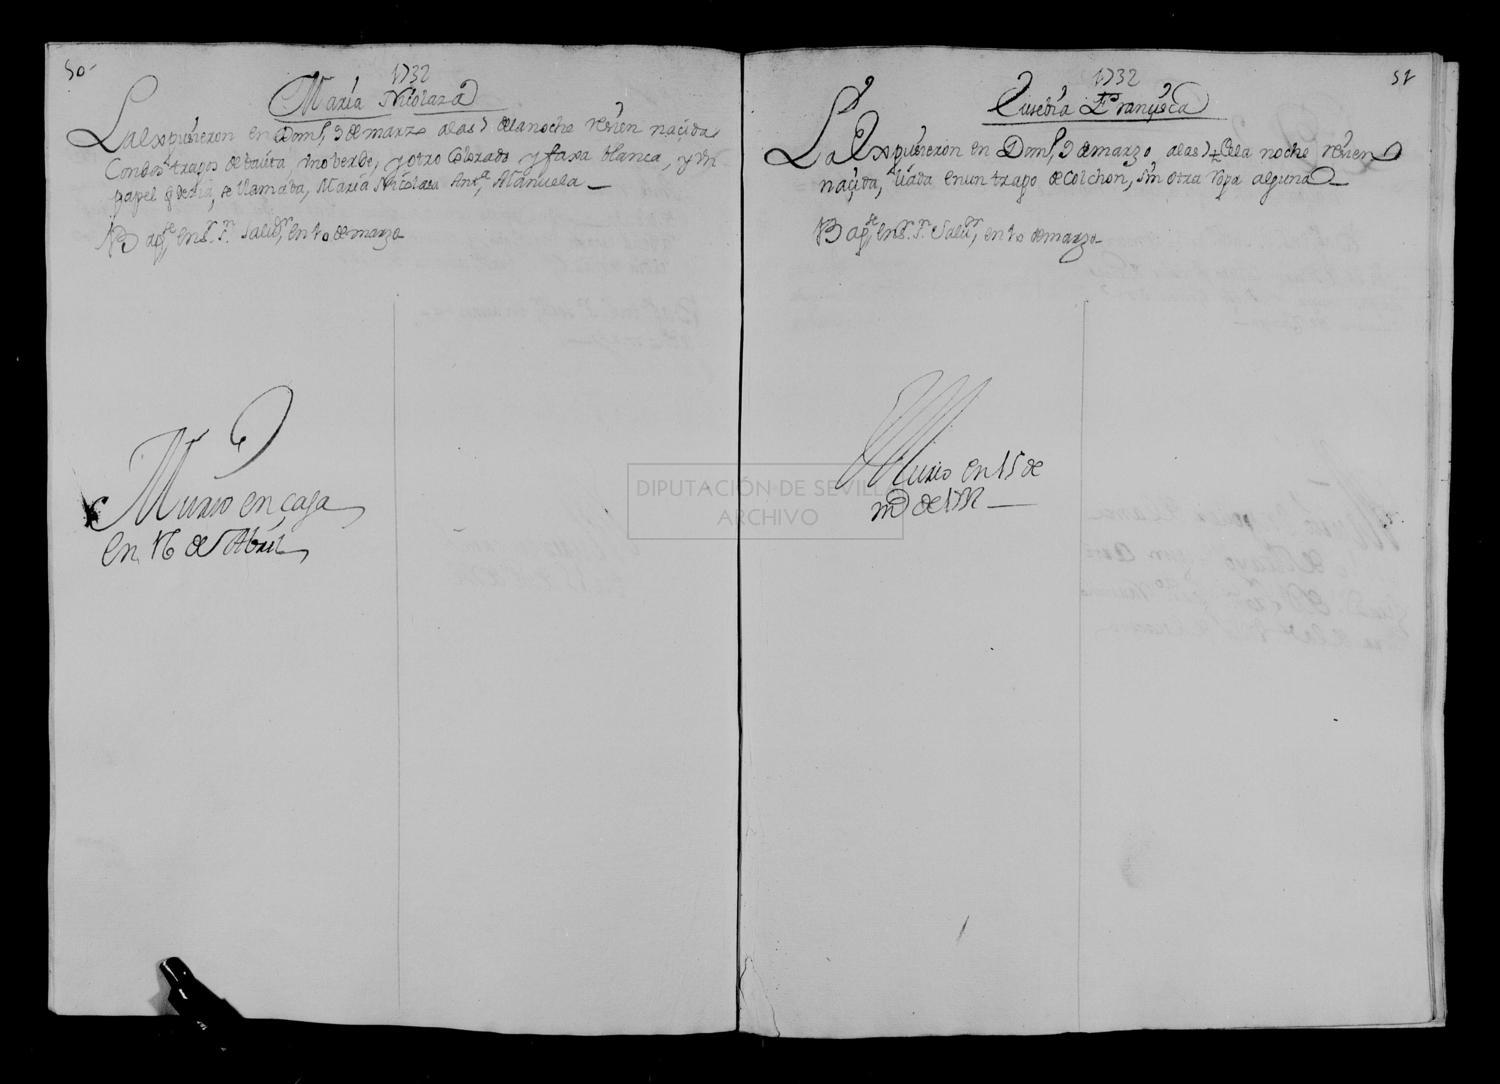 50
1732
María Nicolasa
La expusieron en Domº, 9 de marzo a las 7 de la noche resien naçida
Con dos trapos de baieta, uno berde, y otro Colorado y faxa blanca, y un
papel q desia, se llamaba, María Nicolasa Antª Manuela
Bapse en Sr. Sn. Salvr, en 10 de marzo
Murio en casa
en 16 de Abril
51
1732
Eusebia Franȷsca
La Expusieron en Domº, 9 de marzo a las 7 de la noche resien
naçida, liada en un trapo de Colchon, sin otra ropa alguna
Bapse, en Sr. Sn. Salvr, en 10 de marzo
Murio en 15 de
mzo de 1732
DIPUTACIÓN DE SEVILLA
ARCHIVO